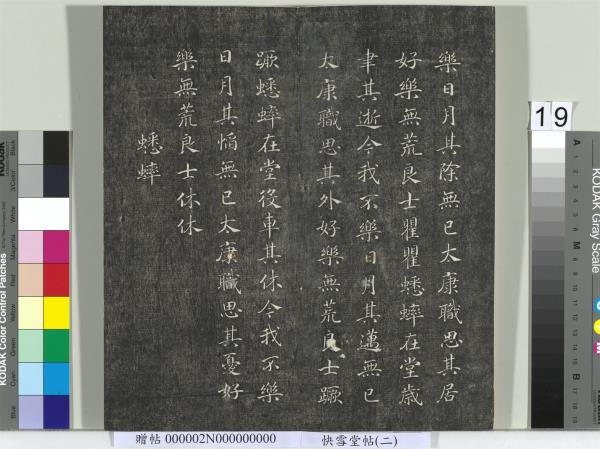 樂日月其除無已太康職思其居
好樂無荒良士瞿瞿蟋蟀在堂歲
聿其逝今我不樂日月其邁無已
太康職思其外好樂無荒良士蹶
蹶蟋蟀在堂役車其休今我不樂
日月其慆無已太康職思其憂好
樂無荒良士休休
蟋蟀
19
贈帖 000002N000000000 快雪堂帖(二)
KODAK Color Control Patches
Blue
Cyan
Green
Yellow
Red
Magenta
White
3/Color
Black
KODAK Gray Scale
A 1 2 3 4 5 6 M 8 9 10 11 12 13 14 15 B 17 18 19
C
Y
M